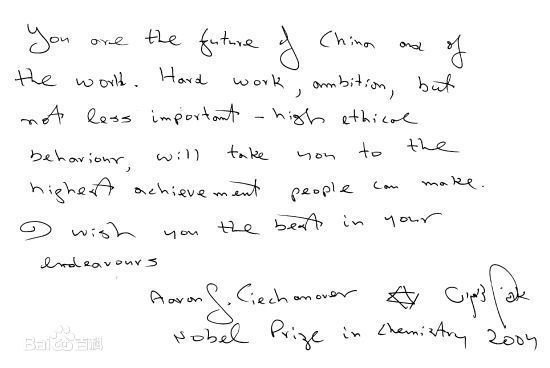 You are the future of China and of
the world. Hard work, ambition, but
not less important - high ethical
behaviour, will take you to the
highest achievement people can make.
I wish you the best in your
endeavours
Aaron J. Ciechanover
Nobel Prize in Chemistry 2004
Bai 百科